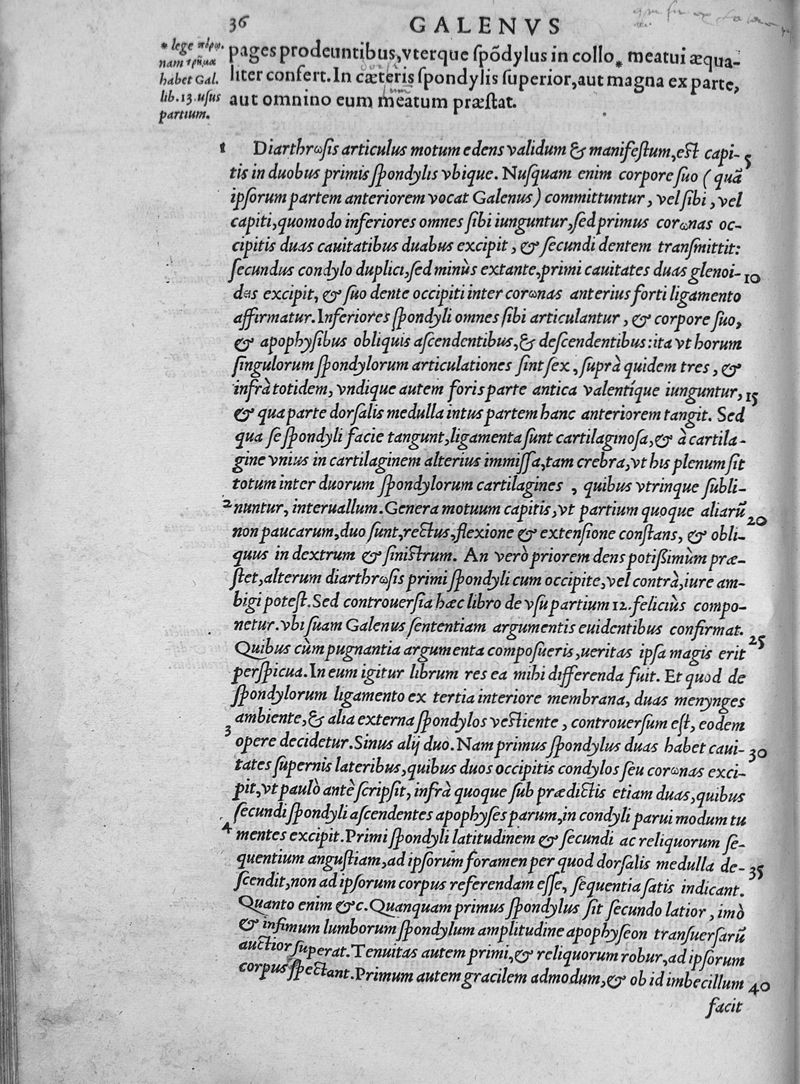 36 GALENVS
* lege
nam
habet Gal.
lib. 13. usus
partium.
pages prodeuntibus, vterque spōdylus in collo * meatui æqua-
liter confert. In cæteris spondylis superior, aut magna ex parte,
aut omnino eum meatum præstat.
1 Diarthrωsis articulus motum edens validum & manifestum, est capi- 5
tis in duobus primis spondylis vbique. Nusquam enim corpore suo ( quā
ipsorum partem anteriorem vocat Galenus) committuntur, vel sibi, vel
capiti, quomodo inferiores omnes sibi iunguntur, sed primus corωnas oc-
cipitis duas cauitatibus duabus excipit, & secundi dentem transmittit:
secundus condylo duplici, sed minùs extante, primi cauitates duas glenoi- 10
das excipit, & suo dente occipiti inter corωnas anterius forti ligamento
affirmatur. Inferiores spondyli omnes sibi articulantur, & corpore suo,
& apophysibus obliquis ascendentibus, & descendentibus: ita vt horum
singulorum spondylorum articulationes sint sex, suprà quidem tres, &
infrà totidem, vndique autem foris parte antica valentíque iunguntur, 15
& qua parte dorsalis medulla intus partem hanc anteriorem tangit. Sed
qua se spondyli facie tangunt, ligamenta sunt cartilaginosa, & à cartila-
gine vnius in cartilaginem alterius immissa, tam crebra, vt his plenum sit
totum inter duorum spondylorum cartilagines , quibus vtrinque subli-
2 nuntur, interuallum. Genera motuum capitis, vt partium quoque aliarū 20
non paucarum, duo sunt, rectus, flexione & extensione constans, & obli-
quus in dextrum & sinistrum. An verò priorem dens potißimùm præ-
stet, alterum diarthrωsis primi spondyli cum occipite, vel contrà, iure am-
bigi potest. Sed controuersia hæc libro de vsu partium 12. feliciùs compo-
netur. vbi suam Galenus sententiam argumentis euidentibus confirmat. 25
Quibus cùm pugnantia argumenta composueris, ueritas ipsa magis erit
perspicua. In eum igitur librum res ea mihi differenda fuit. Et quod de
spondylorum ligamento ex tertia interiore membrana, duas menynges
ambiente, & alia externa spondylos vestiente, controuersum est, eodem
3 opere decidetur. Sinus alij duo. Nam primus spondylus duas habet caui- 30
tates supernis lateribus, quibus duos occipitis condylos seu corωnas exci-
pit, vt paulò antè scripsit, infrà quoque sub prædictis etiam duas, quibus
secundi spondyli ascendentes apophyses parum, in condyli parui modum tu
4 mentes excipit. Primi spondyli latitudinem & secundi ac reliquorum se-
quentium angustiam, ad ipsorum foramen per quod dorsalis medulla de- 35
scendit, non ad ipsorum corpus referendam esse, sequentia satis indicant.
Quanto enim &c. Quanquam primus spondylus sit secundo latior, imò
& infimum lumborum spondylum amplitudine apophyseon transuersarū
auctior superat. Tenuitas autem primi, & reliquorum robur, ad ipsorum
corpus spectant. Primum autem gracilem admodum, & ob id imbecillum 40
facit